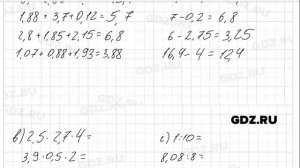 1,88 + 3,7 + 0,12 = 5,7
7 - 0,2 = 6,8
2,8 + 1,85 + 2,15 = 6,8
6 - 2,75 = 3,25
1,07 + 0,88 + 1,93 = 3,88
16,4 - 4 = 12,4
GDZ.RU
GDZ.RU
в) 2,5 · 2,7 · 4 =
г) 1 : 10 =
3,9 · 0,5 · 2 =
8,08 : 8 =
GDZ.RU